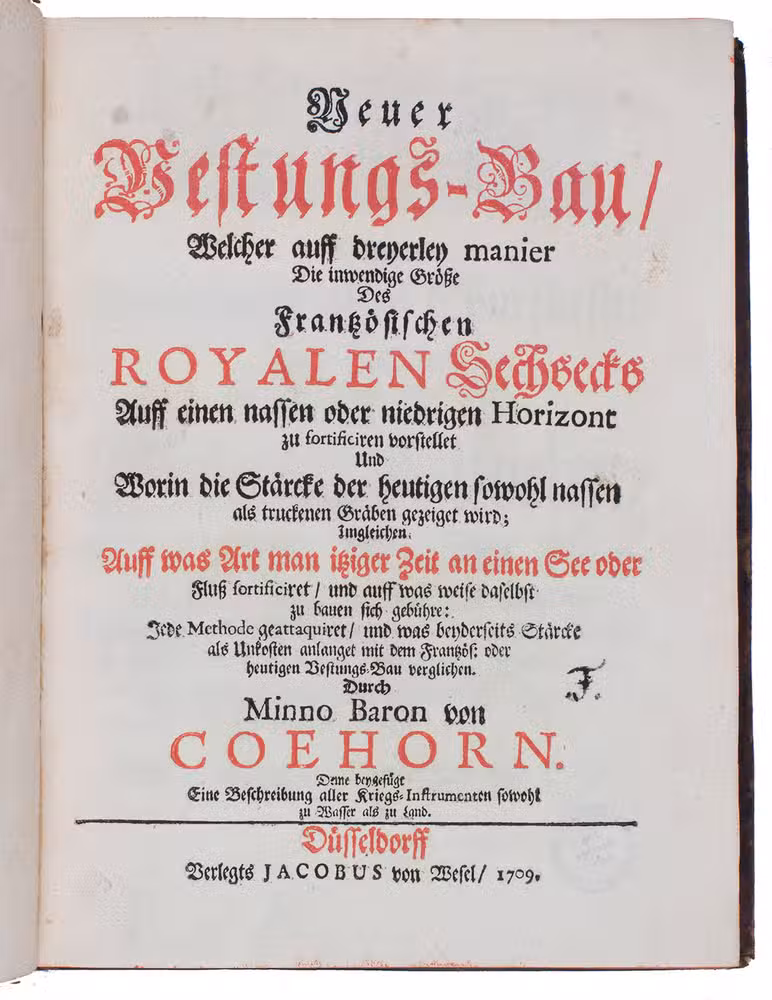 Neuer
Vestungs-Bau/
Welcher auff dreyerley manier
Die inwendige Größe
Des
Frantzösischen
ROYALEN Sechsecks
Auff einen nassen oder niedrigen Horizont
zu fortificiren vorstellet
Und
Worin die Stärcke der heutigen sowohl nassen
als truckenen Gräben gezeiget wird;
Imgleichen.
Auff was Art man itziger Zeit an einen See oder
Fluß fortificiret / und auff was weise daselbst
zu bauen sich gebühre:
Jede Methode geattaquiret / und was beyderseits Stärcke
als Unkosten anlanget mit dem Frantzös: oder
heutigen Vestungs-Bau verglichen.
F.
Durch
Minno Baron von
COEHORN.
Deme beygefügt
Eine Beschreibung aller Kriegs-Instrumenten sowohl
zu Wasser als zu Land.
Düsseldorff
Verlegts JACOBUS von Wesel / 1709.